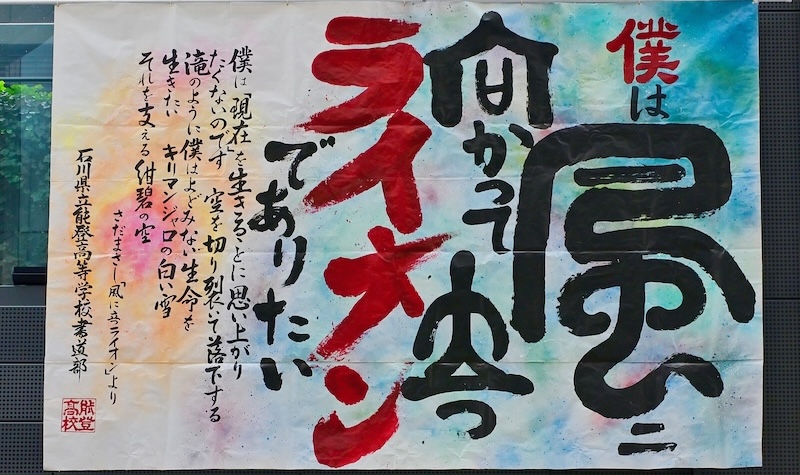 僕は
風ニ
向かって立つ
ライオン
でありたい
僕は「現在」を生きることに思い上がり
たくないのです 空を切り裂いて落下する
滝のように僕はよどみない生命を
生きたい キリマンジャロの白い雪
それを支える紺碧の空
さだまさし「風に立つライオン」より
石川県立能登高等学校書道部
能登
高校